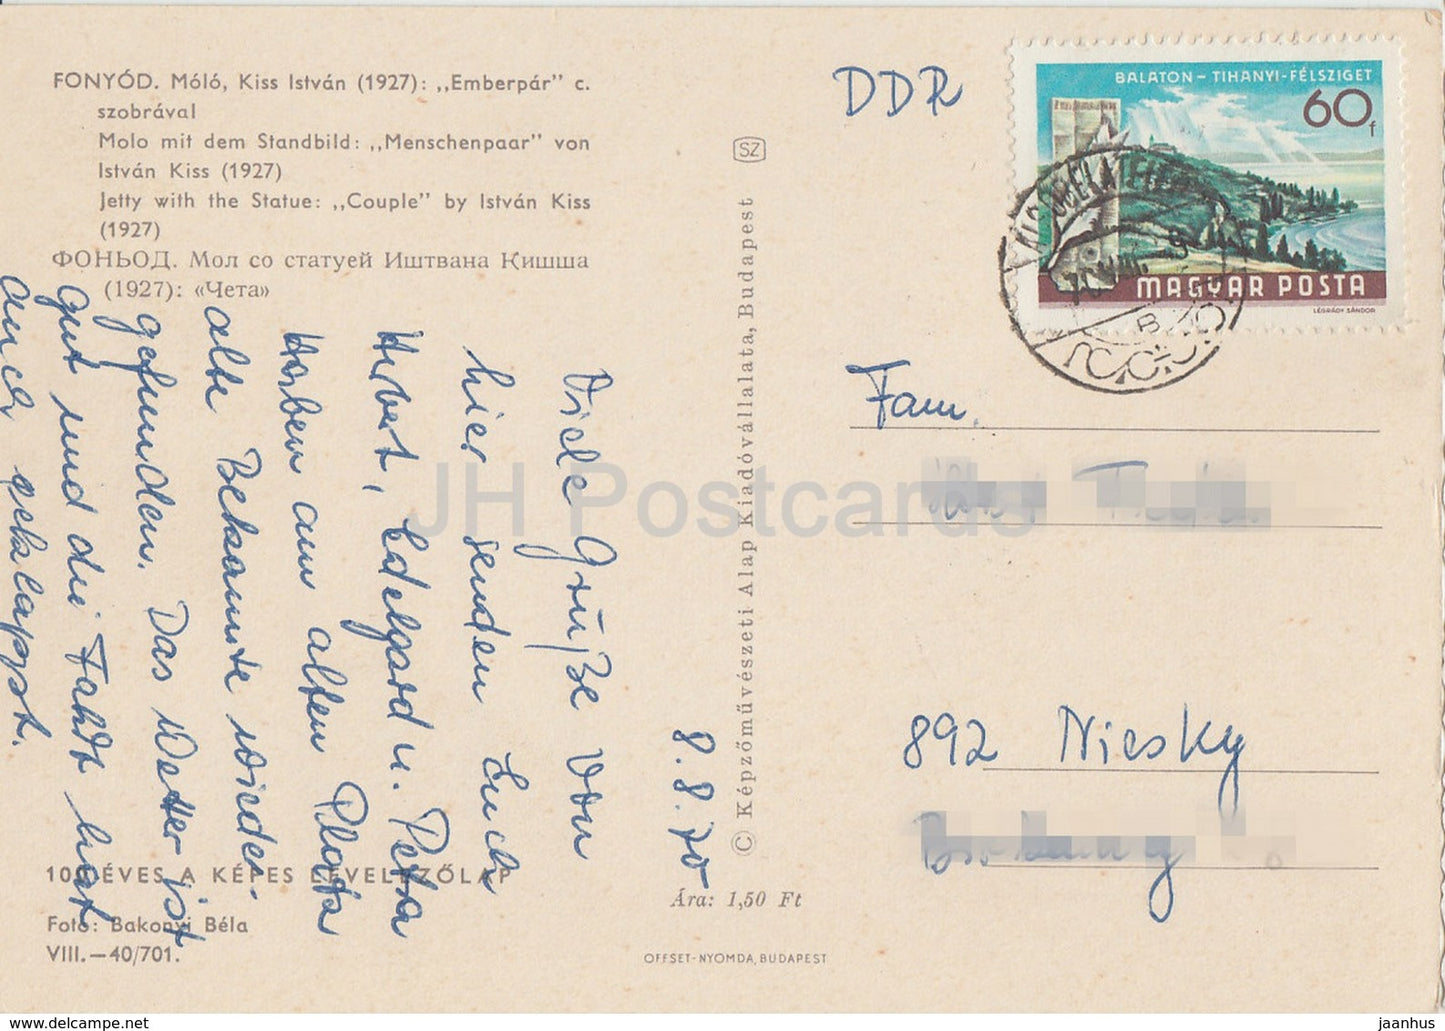 FONYÓD. Móló, Kiss István (1927): „Emberpár" c.
szobrával
Molo mit dem Standbild: „Menschenpaar" von
István Kiss (1927)
Jetty with the Statue: „Couple" by István Kiss
(1927)
ФОНЬОД. Мол со статуей Иштвана Кишша
(1927): «Чета»
8.8.70
Viele Grüße von
hier senden Euch
Herbert, Edelgard u. Petra
Haben am alten Platz
alte Bekannte wieder-
gefunden. Das Wetter ist
gut und die Fahrt hat
auch geklappt.
100 ÉVES A KÉPES LEVELEZŐLAP
Foto: Bakonyi Béla
VIII.—40/701.
SZ
© Képzőművészeti Alap Kiadóvállalata, Budapest
Ára: 1,50 Ft
OFFSET-NYOMDA, BUDAPEST
DDR
BALATON – TIHANYI-FÉLSZIGET
60f
MAGYAR POSTA
LÉGRÁDY SÁNDOR
B
Fam.
892 Niesky
JH Postcards
www.delcampe.net
jaanhus